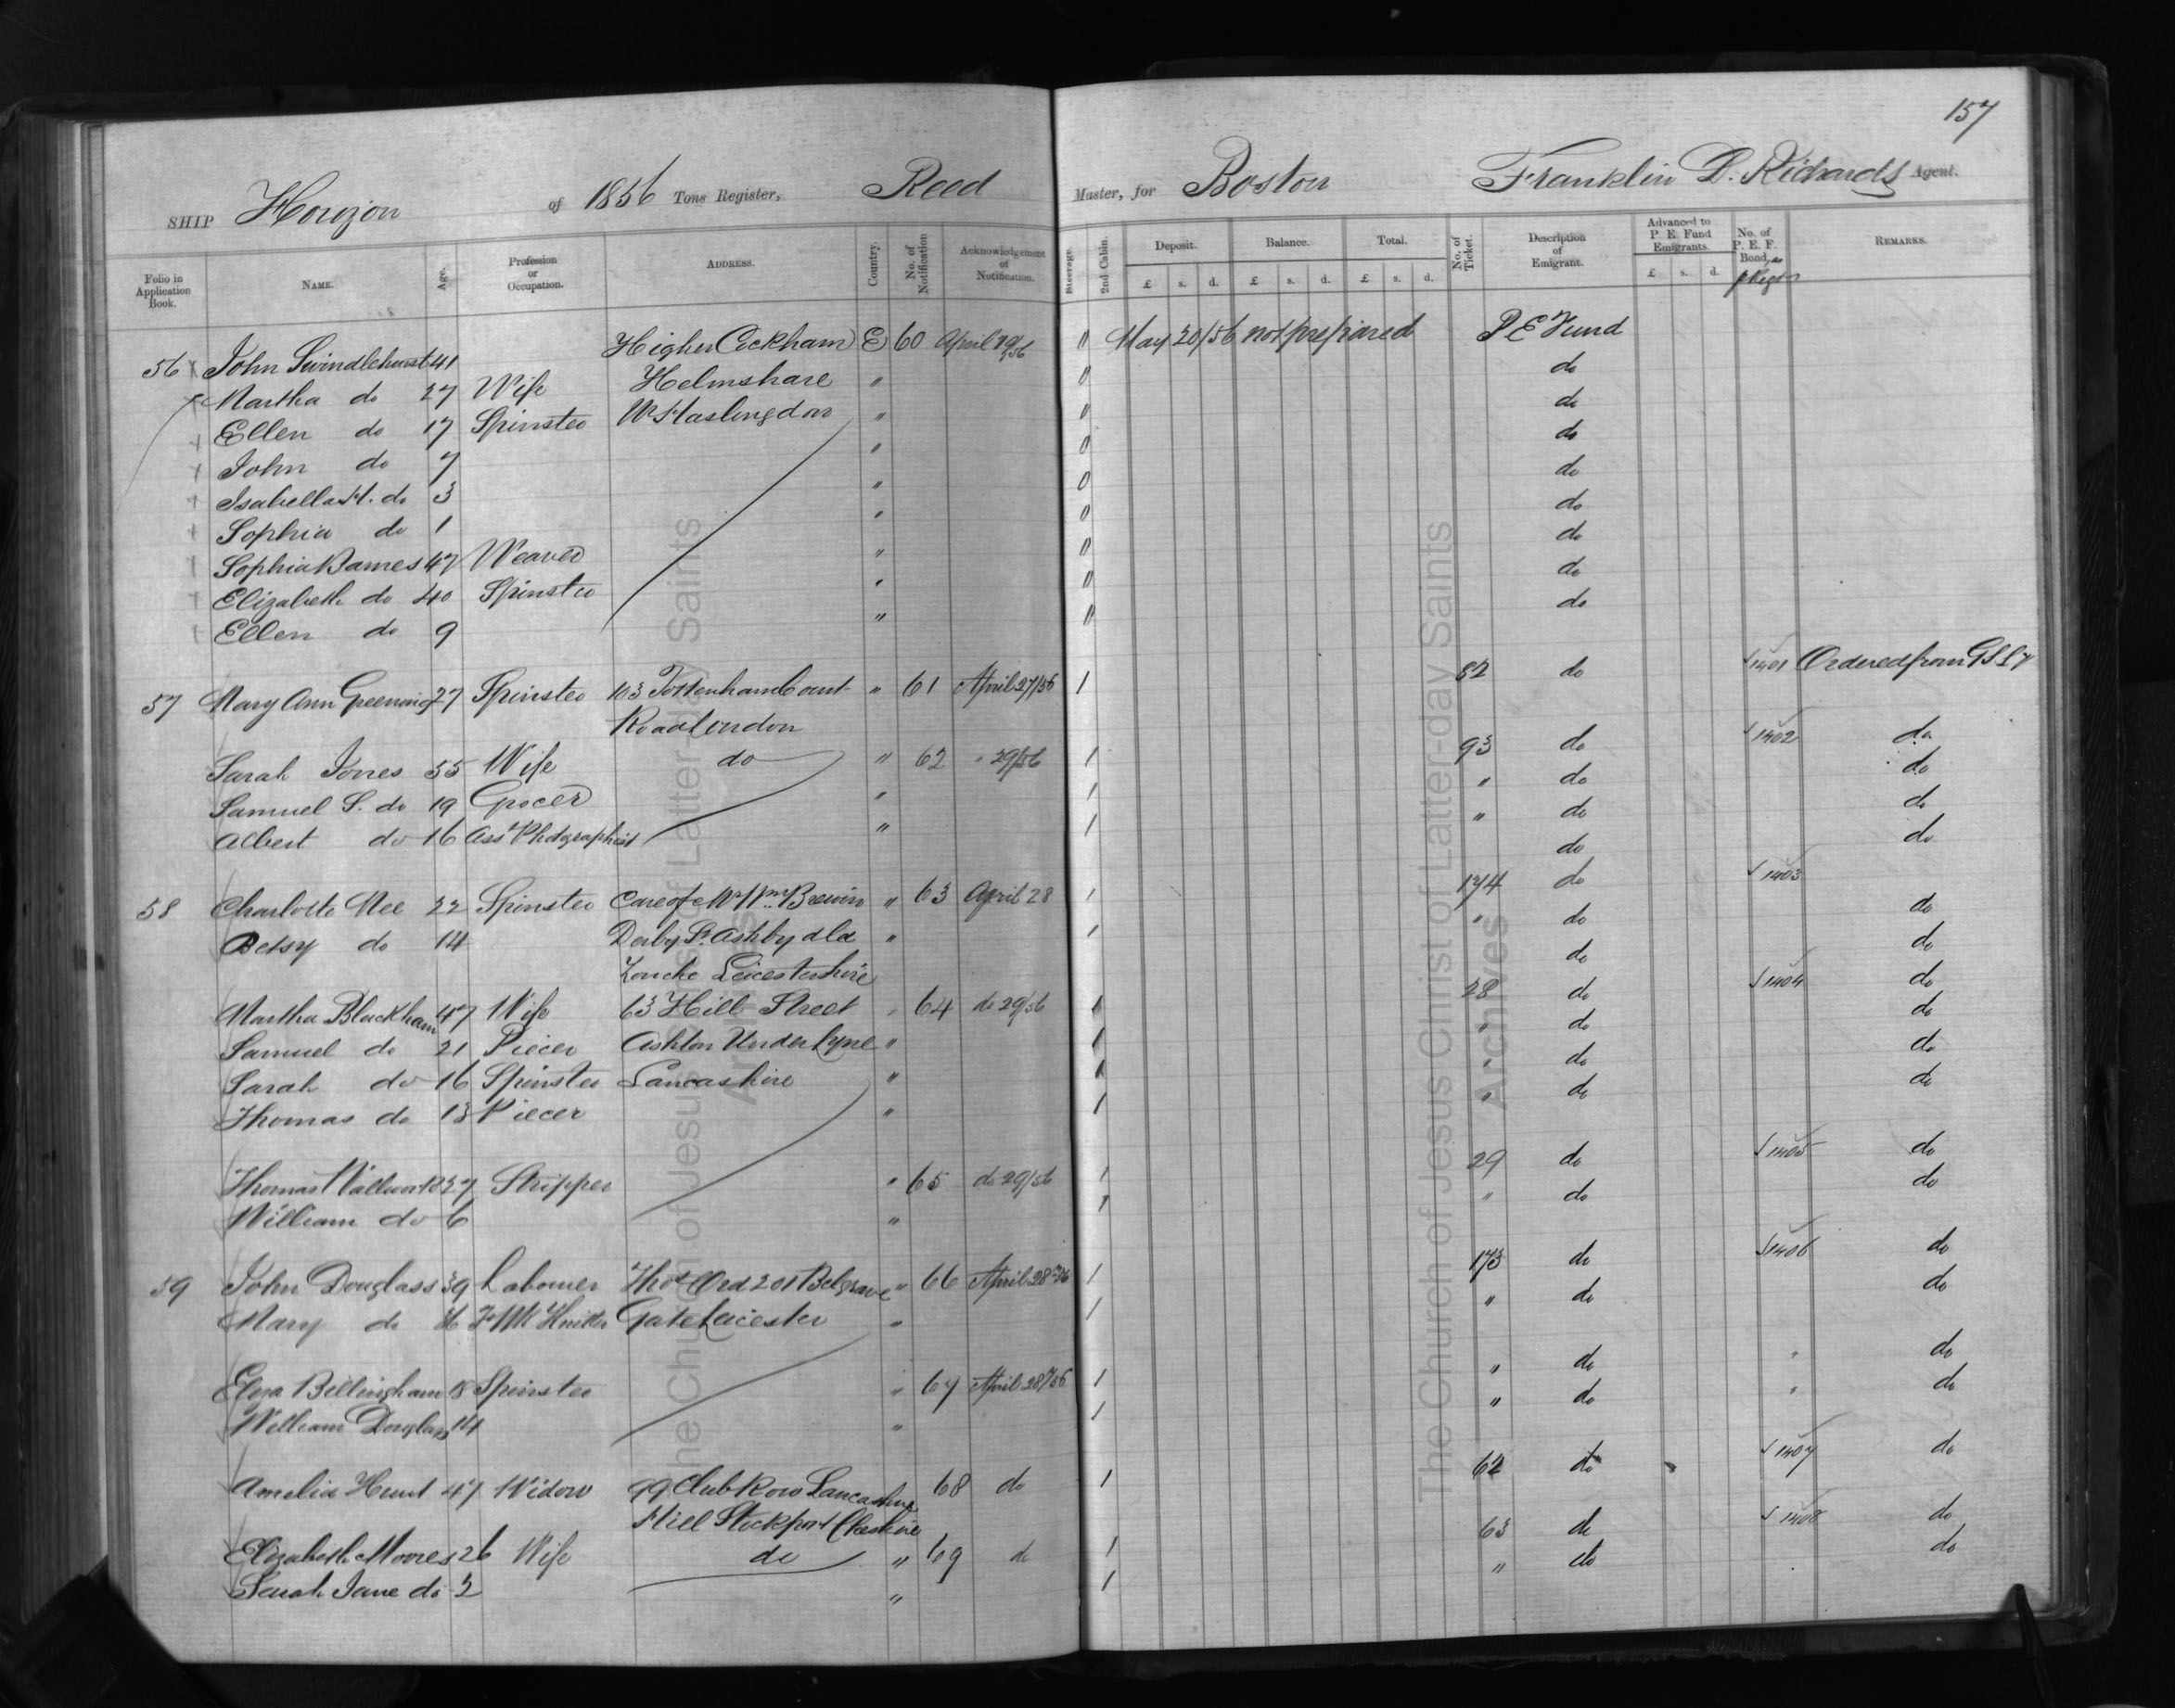 157
SHIP Horizon of 1856 Tons Register, Reed Master, for Boston Franklin D. Richards Agent.
Folio in Application Book. NAME. Age. Profession or Occupation. ADDRESS. Country. No. of Notification Acknowledgement of Notification. Steerage. 2nd Cabin. Deposit. £ s. d. Balance. £ s. d. Total. £ s. d. No. of Ticket. Description of Emigrant. Advanced to P. E. Fund Emigrants. £ s. d. No. of P. E. F. Bond REMARKS.
56 John Swindlehurst 41 Higher Cockham E 60 April " May 20/56 not prepared P E Fund
Martha do 27 Wife Helmshare " " do
Ellen do 17 Spinster Nr Haslingdon " " do
John do 7 " " do
Isabella H. do 3 " " do
Sophia do 1 " " do
Sophia Barnes 47 Weaver " " do
Elizabeth do 40 Spinster " " do
Ellen do 9 " " do
57 Mary Ann Greening 27 Spinster 103 Tottenham Court " 61 April 27/56 1 82 do 1401 Ordered from G S L
Road London
Sarah Jones 55 Wife do " 62 " 29/56 1 93 do 1402 do
Samuel S. do 19 Grocer " 1 " do do
Albert do 16 Asst Photographist " 1 " do do
do do
58 Charlotte Nee 22 Spinster Care of Mr Wm Brewin " 63 April 28 1 174 do 1403
Betsy do 14 Derby St Ashby de la " 1 " do do
Zouche Leicestershire do do
Martha Blackham 47 Wife 63 Hill Street " 64 do 29/56 1 28 do 1404 do
Samuel do 21 Piecer Ashton Under Lyne " 1 " do do
Sarah do 16 Spinster Lancashire " 1 " do do
Thomas do 13 Piecer " 1 " do do
Thomas Wallwork 27 Stripper " 65 do 29/56 1 29 do 1405 do
William do 6 " 1 " do do
59 John Douglass 39 Labourer Thos Ord 201 Belgrave " 66 April 28 1 173 do 1406 do
Mary do Gate Leicester " 1 " do do
Eliza Bellingham 18 Spinster " 67 April 28/56 1 " do " do
William Douglass 14 " 1 " do " do
Amelia Hunt 47 Widow 99 Club Row Lancashire 68 do 1 62 do 1407 do
Hill Stockport Cheshire
Elizabeth Moores 26 Wife do " 69 do 1 63 do 1408 do
Sarah Jane do 2 " 1 " do do
The Church of Jesus Christ of Latter-day Saints
Archives
The Church of Jesus Christ of Latter-day Saints
Archives